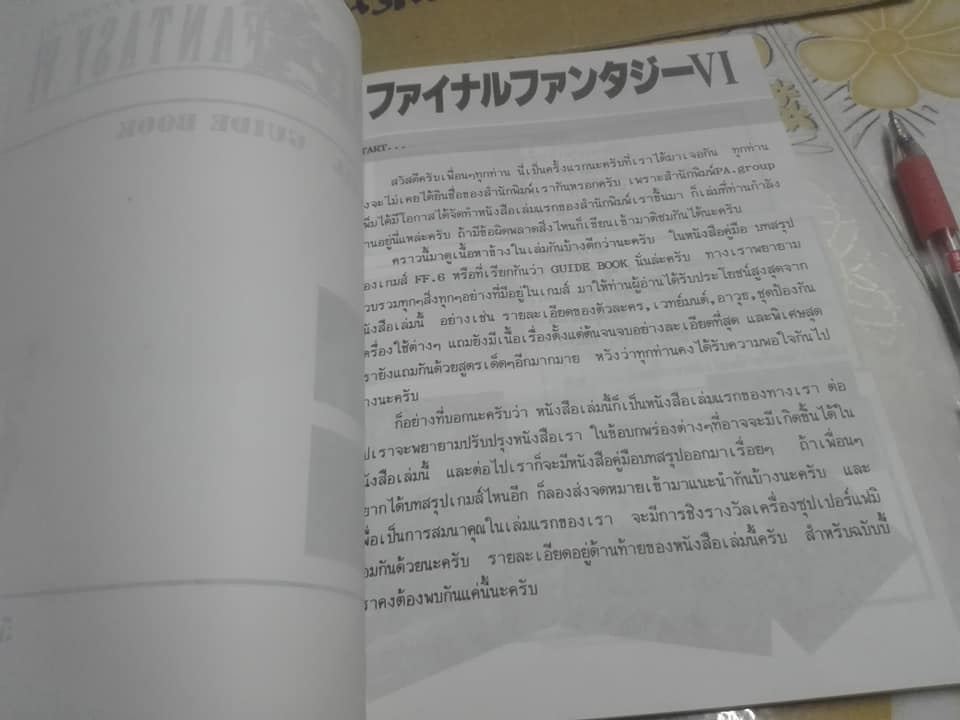 FANTASY VI
GUIDE BOOK
ファイナルファンタジーVI
TART...
สวัสดีครับเพื่อนๆทุกท่าน นี่เป็นครั้งแรกนะครับที่เราได้มาเจอกัน ทุกท่าน
งจะไม่เคยได้ยินชื่อของสำนักพิมพ์เรากันหรอกครับ เพราะสำนักพิมพ์PA.group
พิ่มได้มีโอกาสได้จัดทำหนังสือเล่มแรกของสำนักพิมพ์เราขึ้นมา ก็เล่มที่ท่านกำลัง
านอยู่นี่แหล่ะครับ ถ้ามีข้อผิดพลาดสิ่งไหนก็เขียนเข้ามาติชมกันได้นะครับ
คราวนี้มาดูเนื้อหาข้างในเล่มกันบ้างดีกว่านะครับ ในหนังสือคู่มือ บทสรุป
องเกมส์ FF.6 หรือที่เรียกกันว่า GUIDE BOOK นั่นล่ะครับ ทางเราพยายาม
วบรวมทุกๆสิ่งทุกๆอย่างที่มีอยู่ในเกมส์ มาให้ท่านผู้อ่านได้รับประโยชน์สูงสุดจาก
นังสือเล่มนี้ อย่างเช่น รายละเอียดของตัวละคร,เวทย์มนต์,อาวุธ,ชุดป้องกัน
ครื่องใช้ต่างๆ แถมยังมีเนื้อเรื่องตั้งแต่ต้นจนจบอย่างละเอียดที่สุด และพิเศษสุด
รายังแถมกันด้วยสูตรเด็ดๆอีกมากมาย หวังว่าทุกท่านคงได้รับความพอใจกันไป
้างนะครับ
ก็อย่างที่บอกนะครับว่า หนังสือเล่มนี้ก็เป็นหนังสือเล่มแรกของทางเรา ต่อ
ปเราจะพยายามปรับปรุงหนังสือเรา ในข้อบกพร่องต่างๆที่อาจจะมีเกิดขึ้นได้ใน
นังสือเล่มนี้ และต่อไปเราก็จะมีหนังสือคู่มือบทสรุปออกมาเรื่อยๆ ถ้าเพื่อนๆ
ยากได้บทสรุปเกมส์ไหนอีก ก็ลองส่งจดหมายเข้ามาแนะนำกันบ้างนะครับ และ
พื่อเป็นการสมนาคุณในเล่มแรกของเรา จะมีการชิงรางวัลเครื่องซุปเปอร์แฟมิ
อมกันด้วยนะครับ รายละเอียดอยู่ด้านท้ายของหนังสือเล่มนี้ครับ สำหรับฉบับนี้
ราคงต้องพบกันแค่นี้นะครับ